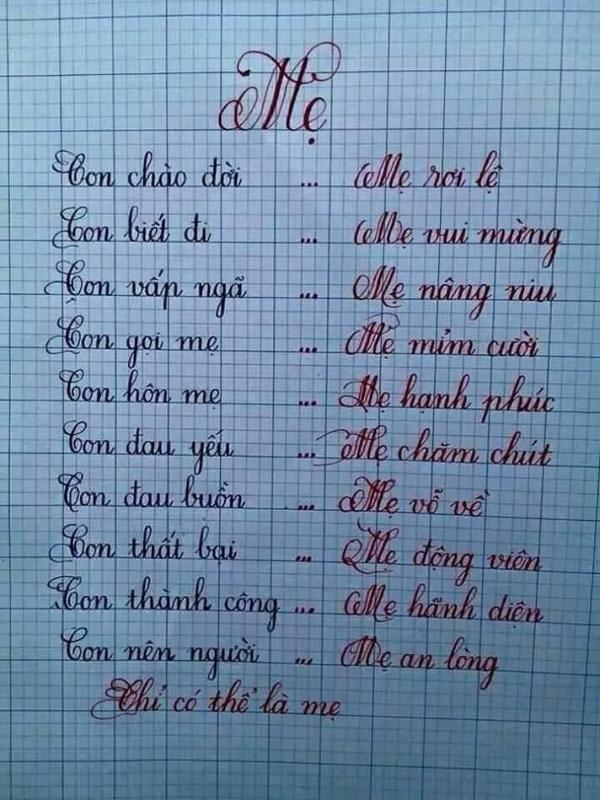 Mẹ
Con chào đời ... Mẹ rơi lệ
Con biết đi ... Mẹ vui mừng
Con vấp ngã ... Mẹ nâng niu
Con gọi mẹ ... Mẹ mỉm cười
Con hôn mẹ ... Mẹ hạnh phúc
Con đau yếu ... Mẹ chăm chút
Con đau buồn ... Mẹ vỗ về
Con thất bại ... Mẹ động viên
Con thành công ... Mẹ hãnh diện
Con nên người ... Mẹ an lòng
Chỉ có thể là mẹ